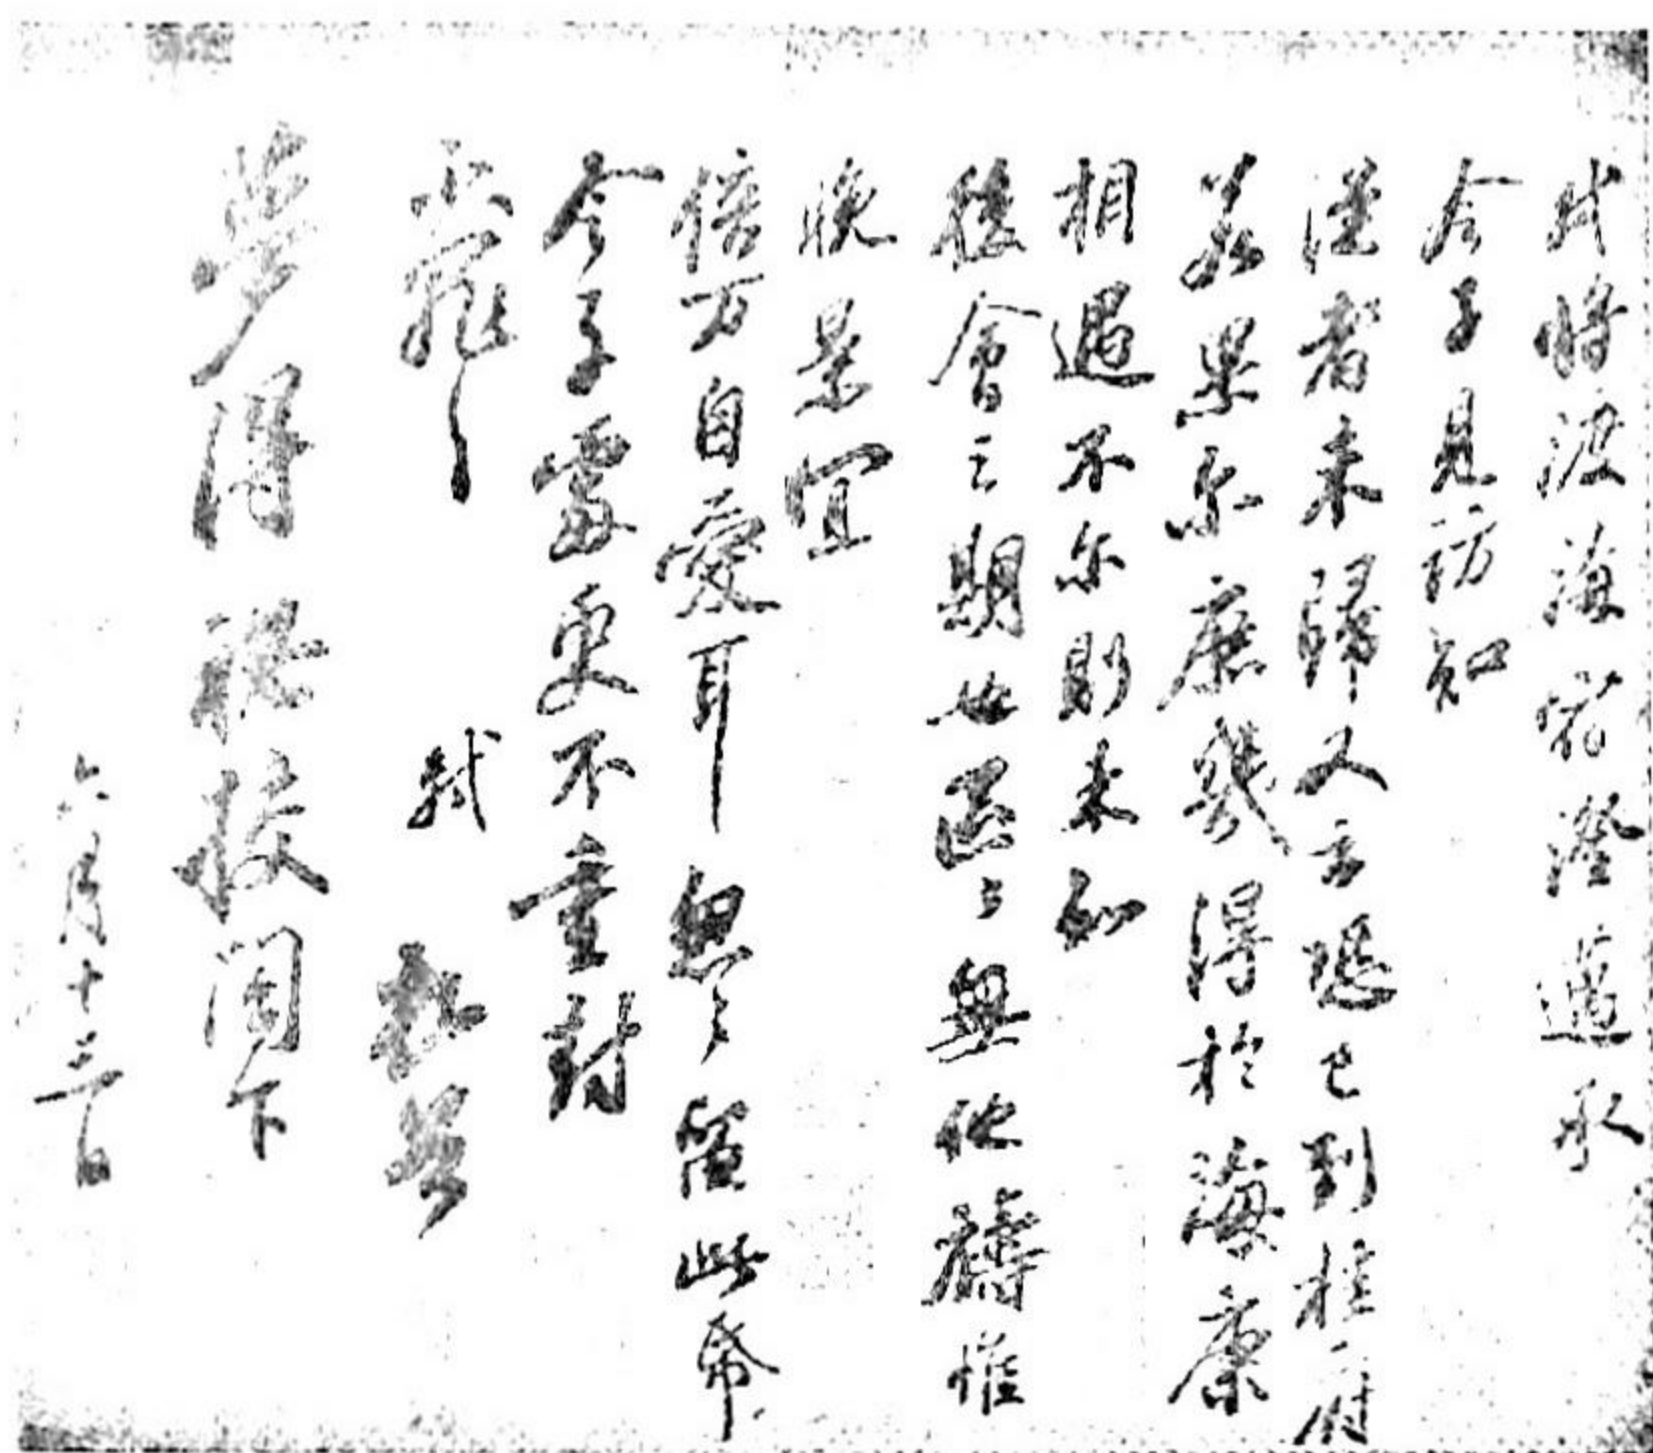 軾將渡海宿澄邁承
令子見訪知
從者未歸又云恐已到桂府
若果尔庶幾得於海康
相遇不尔則未知
後會之期也區區無他禱惟
晚景宜
倍万自愛耳怱怱留此帋
令子處更不重封
不罪 軾 頓首
夢得秘校閣下
六月十三日